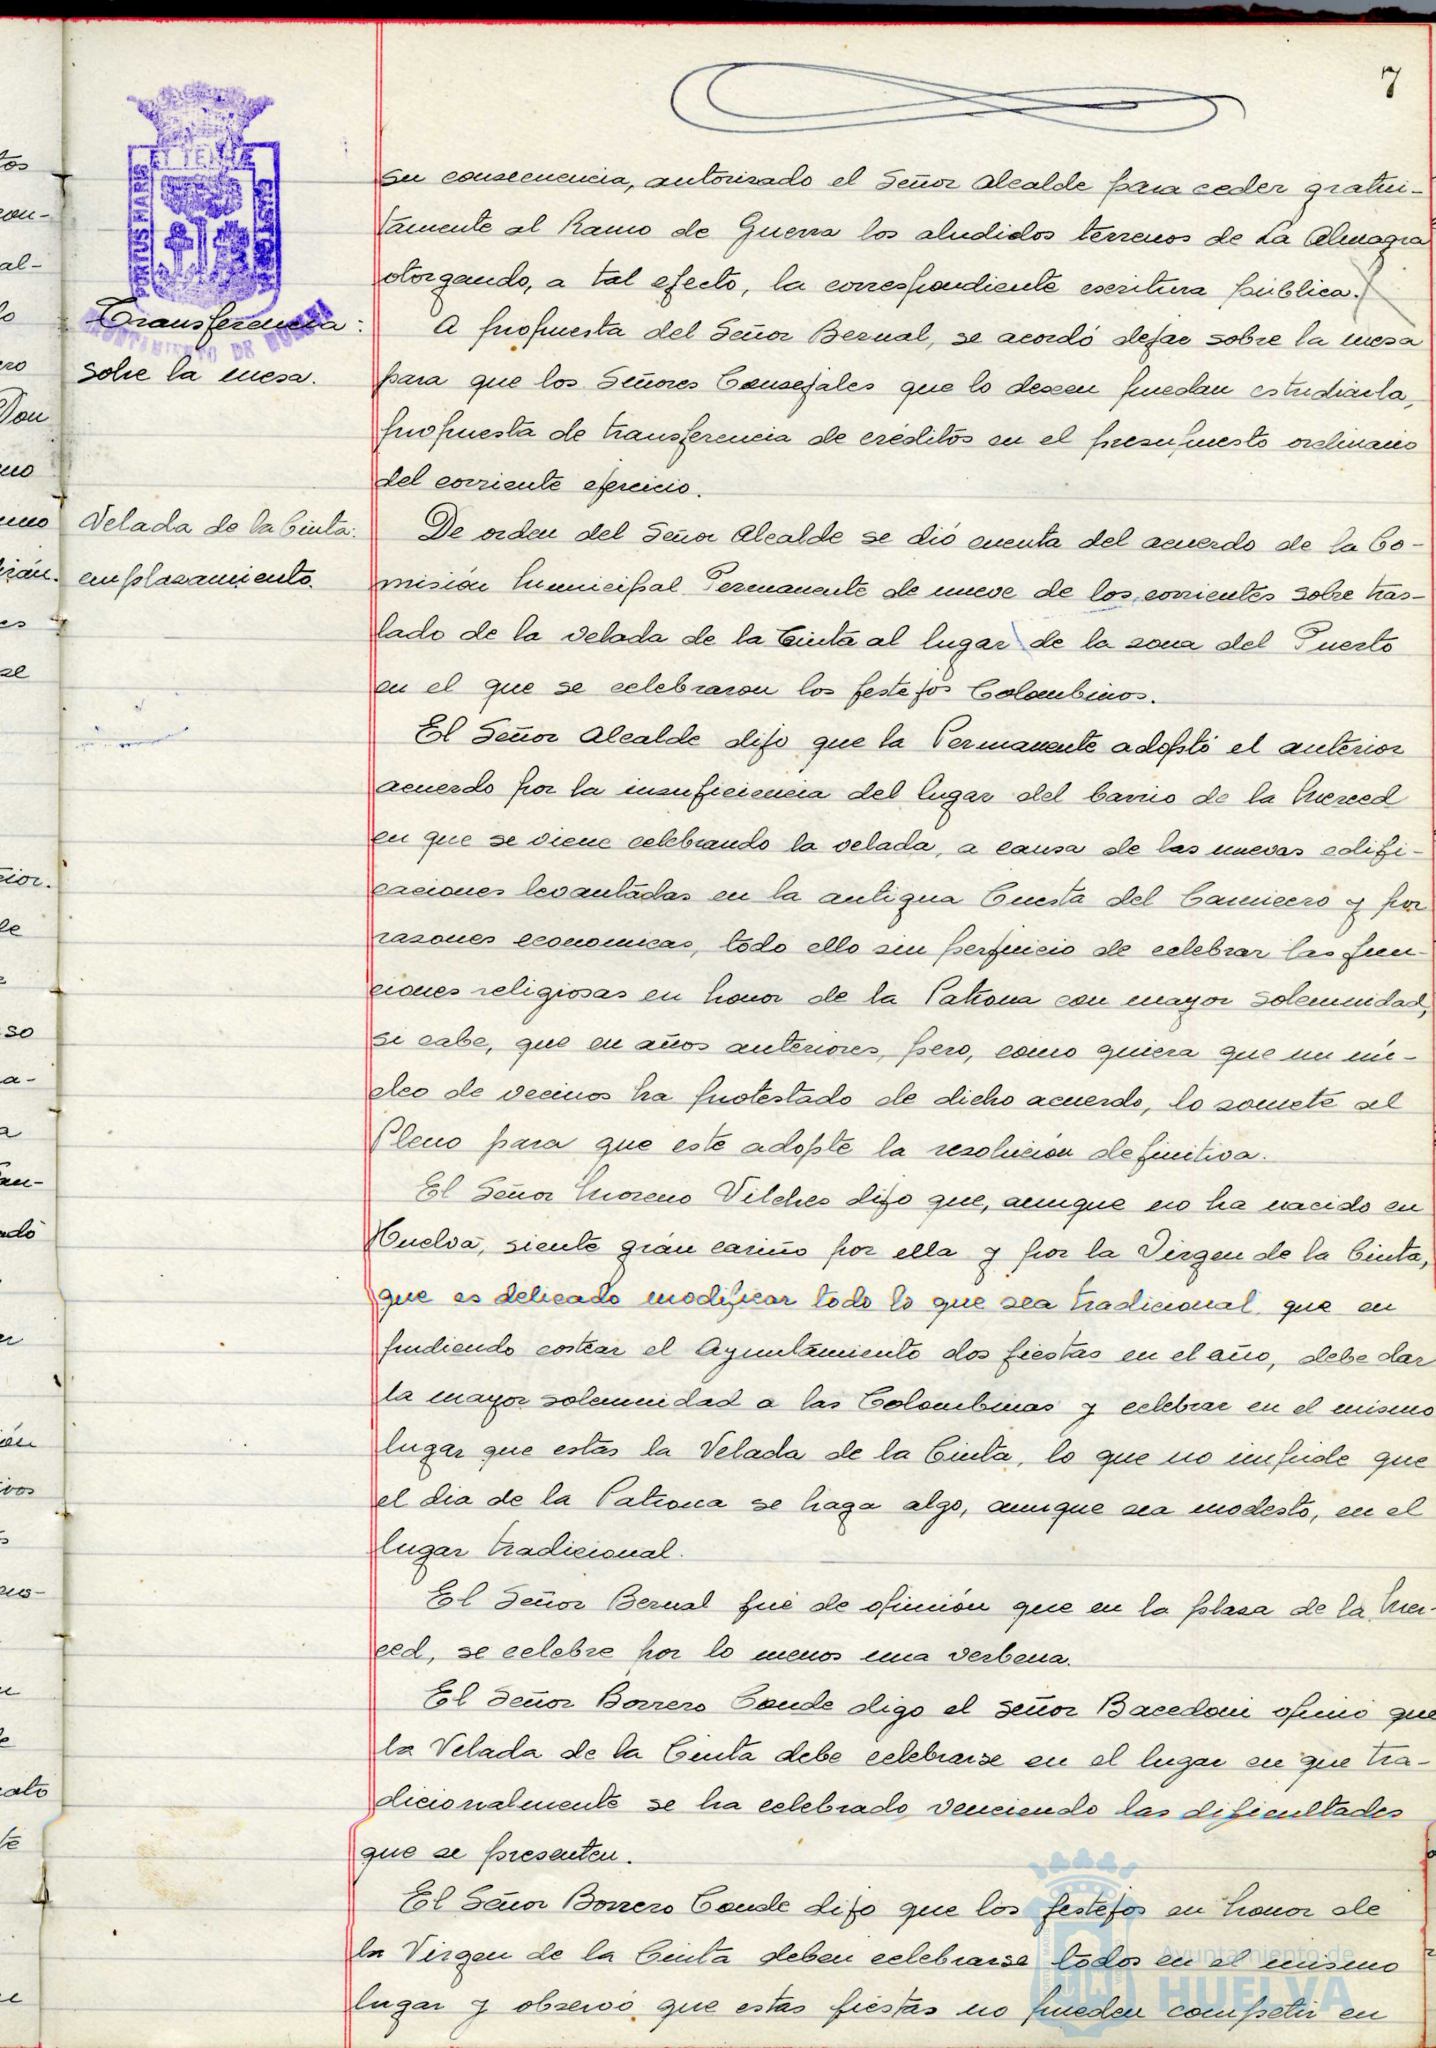 7
su consecuencia, autorizado el Señor Alcalde para ceder gratui-
tamente al Ramo de Guerra los aludidos terrenos de La Almagra
otorgando, a tal efecto, la correspondiente escritura pública.
Transferencia:
sobre la mesa.
A propuesta del Señor Bernal, se acordó dejar sobre la mesa
para que los Señores Consejales que lo deseen puedan estudiarla,
propuesta de transferencia de créditos en el presupuesto ordinario
del corriente ejercicio.
Velada de la Cinta:
emplazamiento.
De orden del Señor Alcalde se dió cuenta del acuerdo de la Co-
misión Municipal Permanente de nueve de los corrientes sobre tras-
lado de la velada de la Cinta al lugar de la zona del Puerto
en el que se celebraron los festejos Colombinos.
El Señor Alcalde dijo que la Permanente adoptó el anterior
acuerdo por la insuficiencia del lugar del barrio de la Merced
en que se viene celebrando la velada, a causa de las nuevas edifi-
caciones levantadas en la antigua Cuesta del Carnicero y por
razones economicas, todo ello sin perjuicio de celebrar las fun-
ciones religiosas en honor de la Patrona con mayor solemnidad,
si cabe, que en años anteriores, pero, como quiera que un nú-
cleo de vecinos ha protestado de dicho acuerdo, lo somete al
Pleno para que este adopte la resolución definitiva.
El Señor Moreno Vilches dijo que, aunque no ha nacido en
Huelva, siente grán cariño por ella y por la Virgen de la Cinta,
que es delicado modificar todo lo que sea tradicional, que en
pudiendo costear el Ayuntamiento dos fiestas en el año, debe dar
la mayor solemnidad a las Colombinas y celebrar en el mismo
lugar que estas la Velada de la Cinta, lo que no impide que
el dia de la Patrona se haga algo, aunque sea modesto, en el
lugar tradicional.
El Señor Bernal fué de opinión que en la plaza de la Mer-
ced, se celebre por lo menos una verbena.
El Señor Borrero Conde digo el señor Bacedoni opinió que
la Velada de la Cinta debe celebrarse en el lugar en que tra-
dicionalmente se ha celebrado, venciendo las dificultades
que se presenten.
El Señor Borrero Conde dijo que los festejos en honor de
la Virgen de la Cinta deben celebrarse todos en el mismo
lugar y observó que estas fiestas no pueden competir en
PORTUS MARIS
ET TERRE
CUSTODIA
AYUNTAMIENTO DE HUELVA
Ayuntamiento de
HUELVA